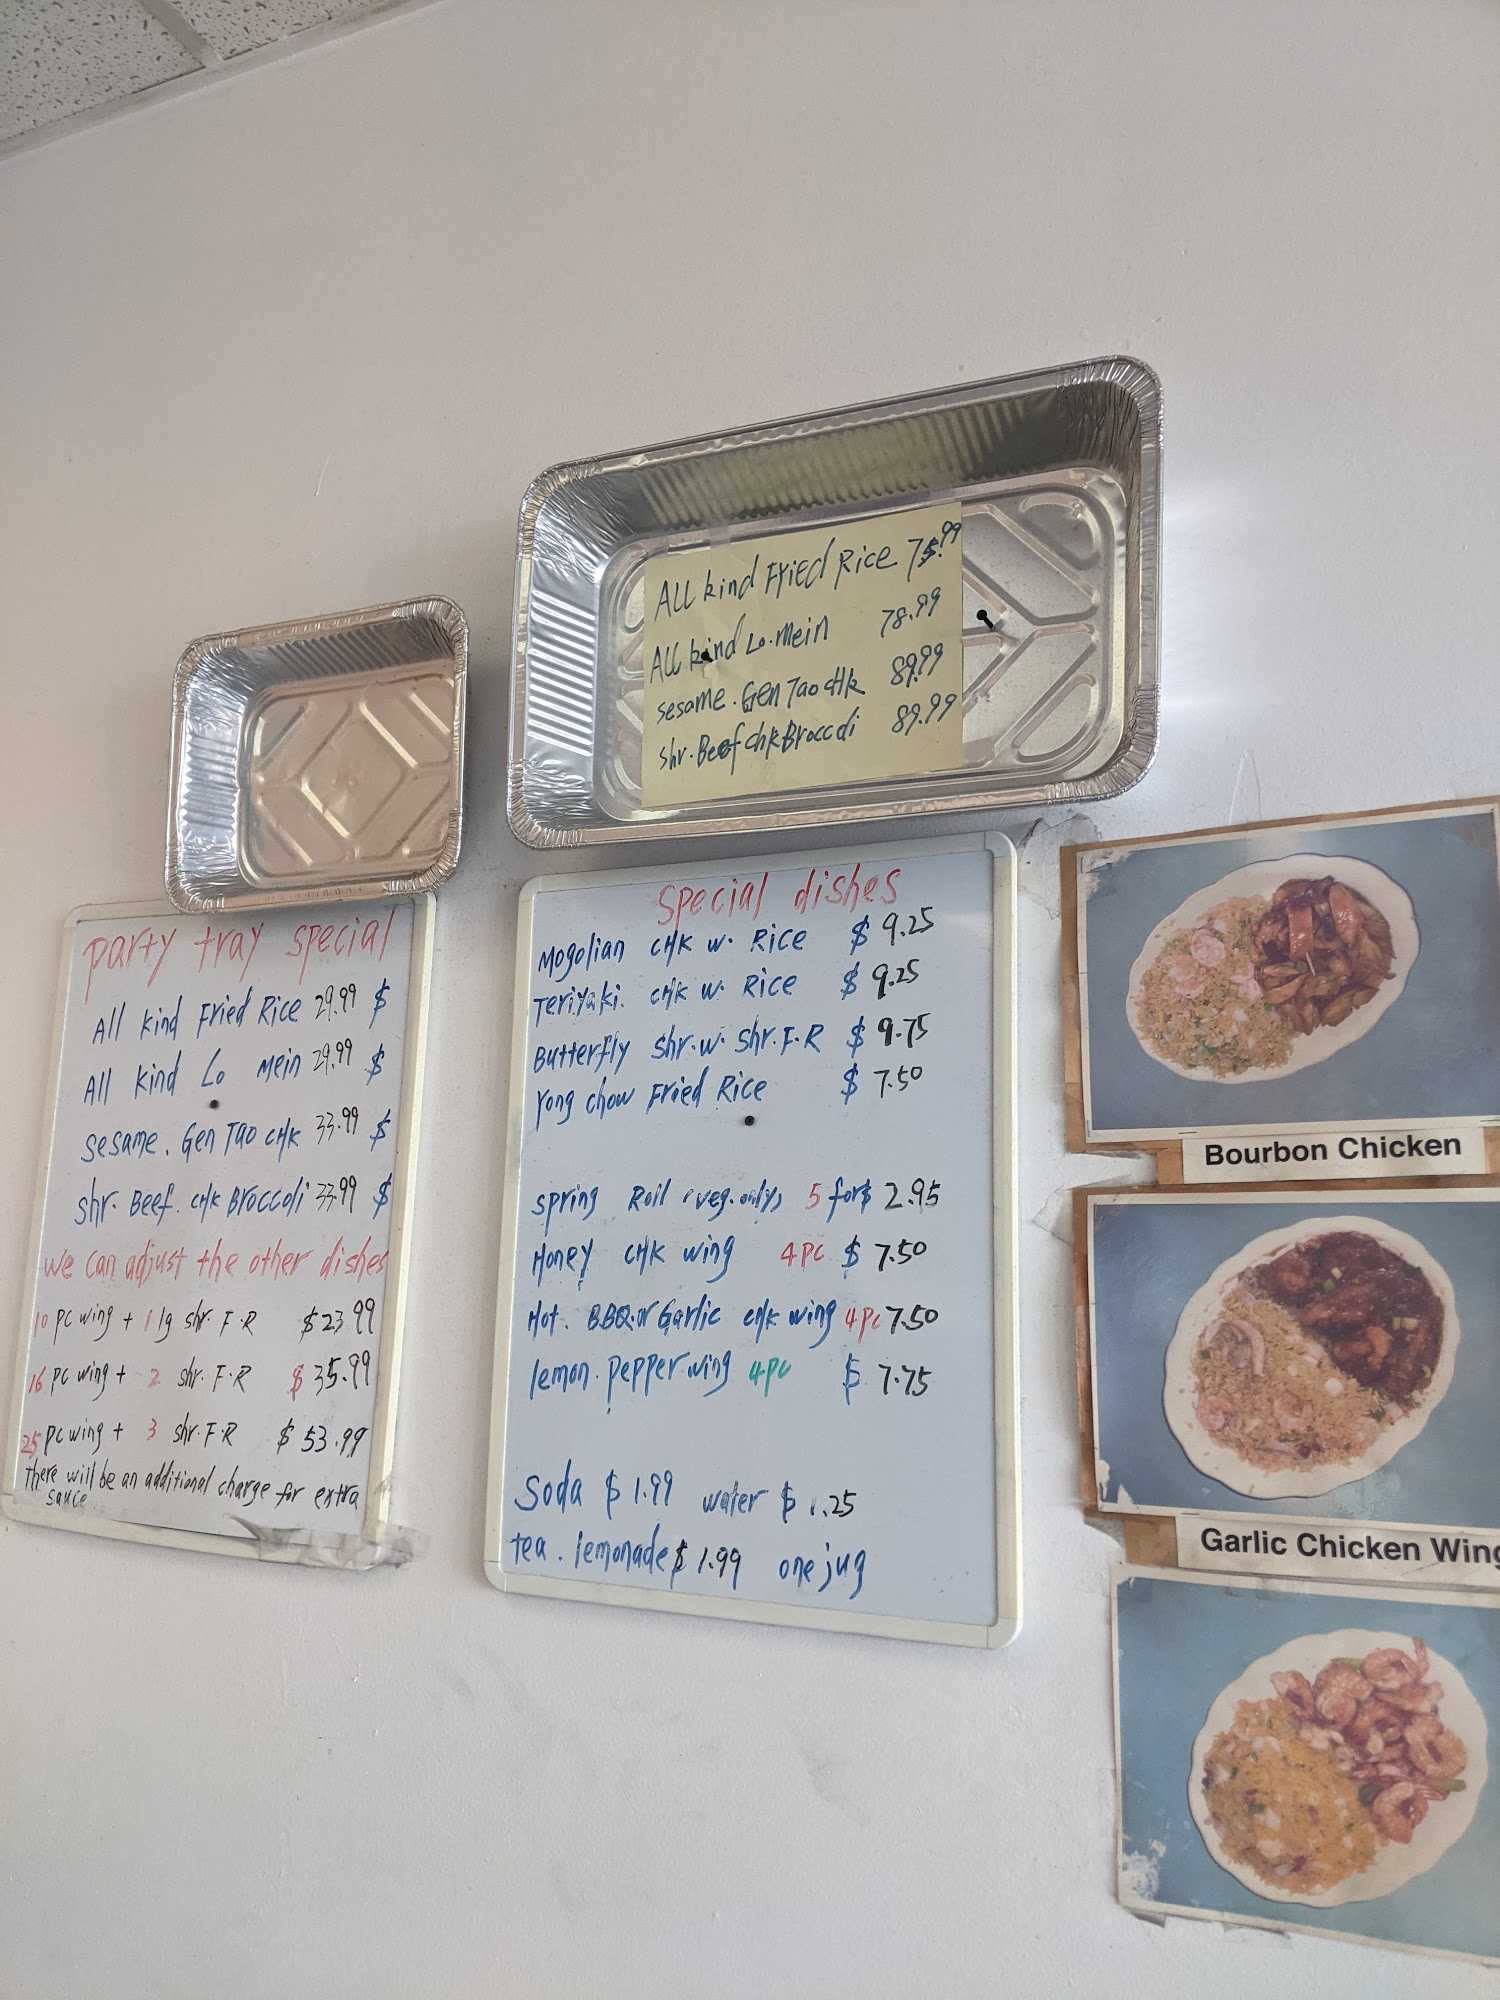 ALL kind Fried Rice 75.99
ALL kind Lo.Mein 78.99
sesame.Gen Tao cHk 89.99
shr.Beef chk Broccoli 89.99
party tray special
All kind Fried Rice 29.99 $
All kind Lo mein 29.99 $
sesame. Gen Tao cHk 33.99 $
shr. Beef. cHk Broccoli 33.99 $
we can adjust the other dishes
10 pc wing + 1 lg shr. F.R $23.99
16 pc wing + 2 shr. F.R $35.99
25 pc wing + 3 shr. F.R $53.99
there will be an additional charge for extra
sauce.
Special dishes
Mogolian cHK w. Rice $ 9.25
Teriyaki. cHK w. Rice $ 9.25
Butterfly shr.w. shr.F.R $ 9.75
Yong chow Fried Rice $ 7.50
spring Roll (veg.only) 5 for $ 2.95
Honey cHK wing 4PC $ 7.50
Hot. BBQ.or Garlic cHk wing 4pc 7.50
lemon.pepper wing 4pc $ 7.75
Soda $ 1.99 water $ 1.25
tea. lemonade $ 1.99 one jug
Bourbon Chicken
Garlic Chicken Wing